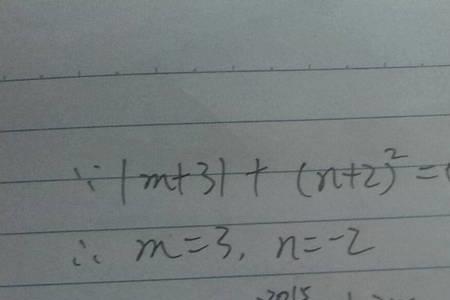 ∵ |m+3| + (n+2)² =
∴ m=3, n=-2
2015